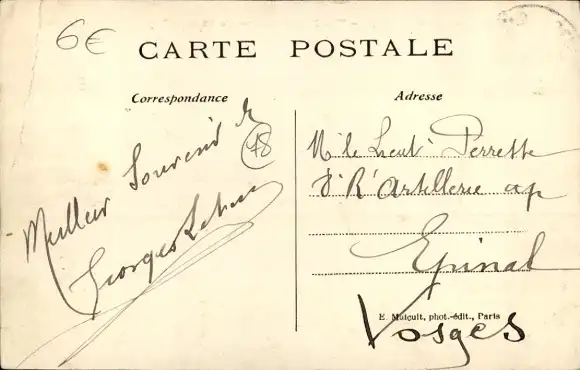 6€
CARTE POSTALE
Correspondance
Adresse
Meilleur Souvenir de
48
Georges
Mr le Lieut Perrette
Artillerie
Epinal
E. Malcuit, phot.-édit., Paris
Vosges